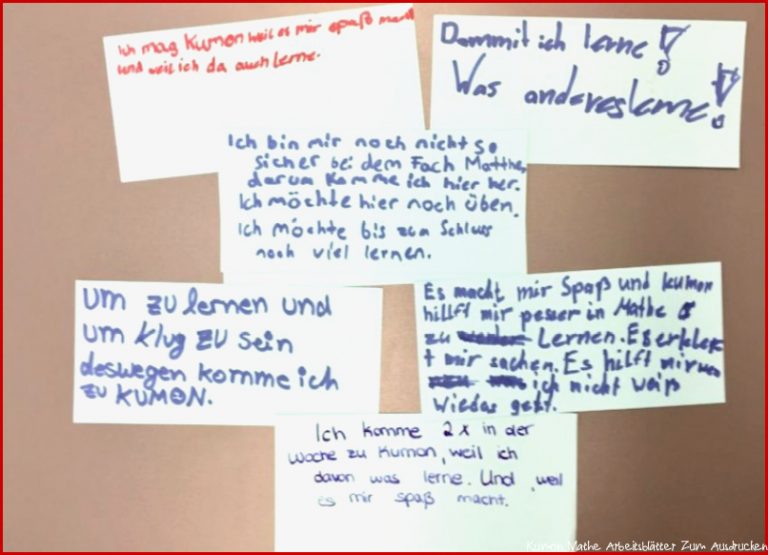 Ich mag Kumon weil es mir spaß macht
und weil ich da auch lerne.
Dammit ich lerne!
Was andereslerne!
Ich bin mir noch nicht so
sicher bei dem Fach Matthe,
darum Komme ich hier her.
Ich möchte hier noch üben.
Ich möchte bis zum Schluss
noch viel lernen.
um zu lernen und
um klug zu sein
deswegen komme ich
zu KUMON.
Es macht mir Spaß und kumon
hillft mir pesser in Mathe
zu Lernen. Es erklek
t mir sachen. Es hilft mir
ich nicht waiß
wiedas geht.
Ich komme 2x in der
Woche zu Kumon, weil ich
davon was lerne. Und, weil
es mir spaß macht.
Kumon Mathe Arbeitsblätter Zum Ausdrucken